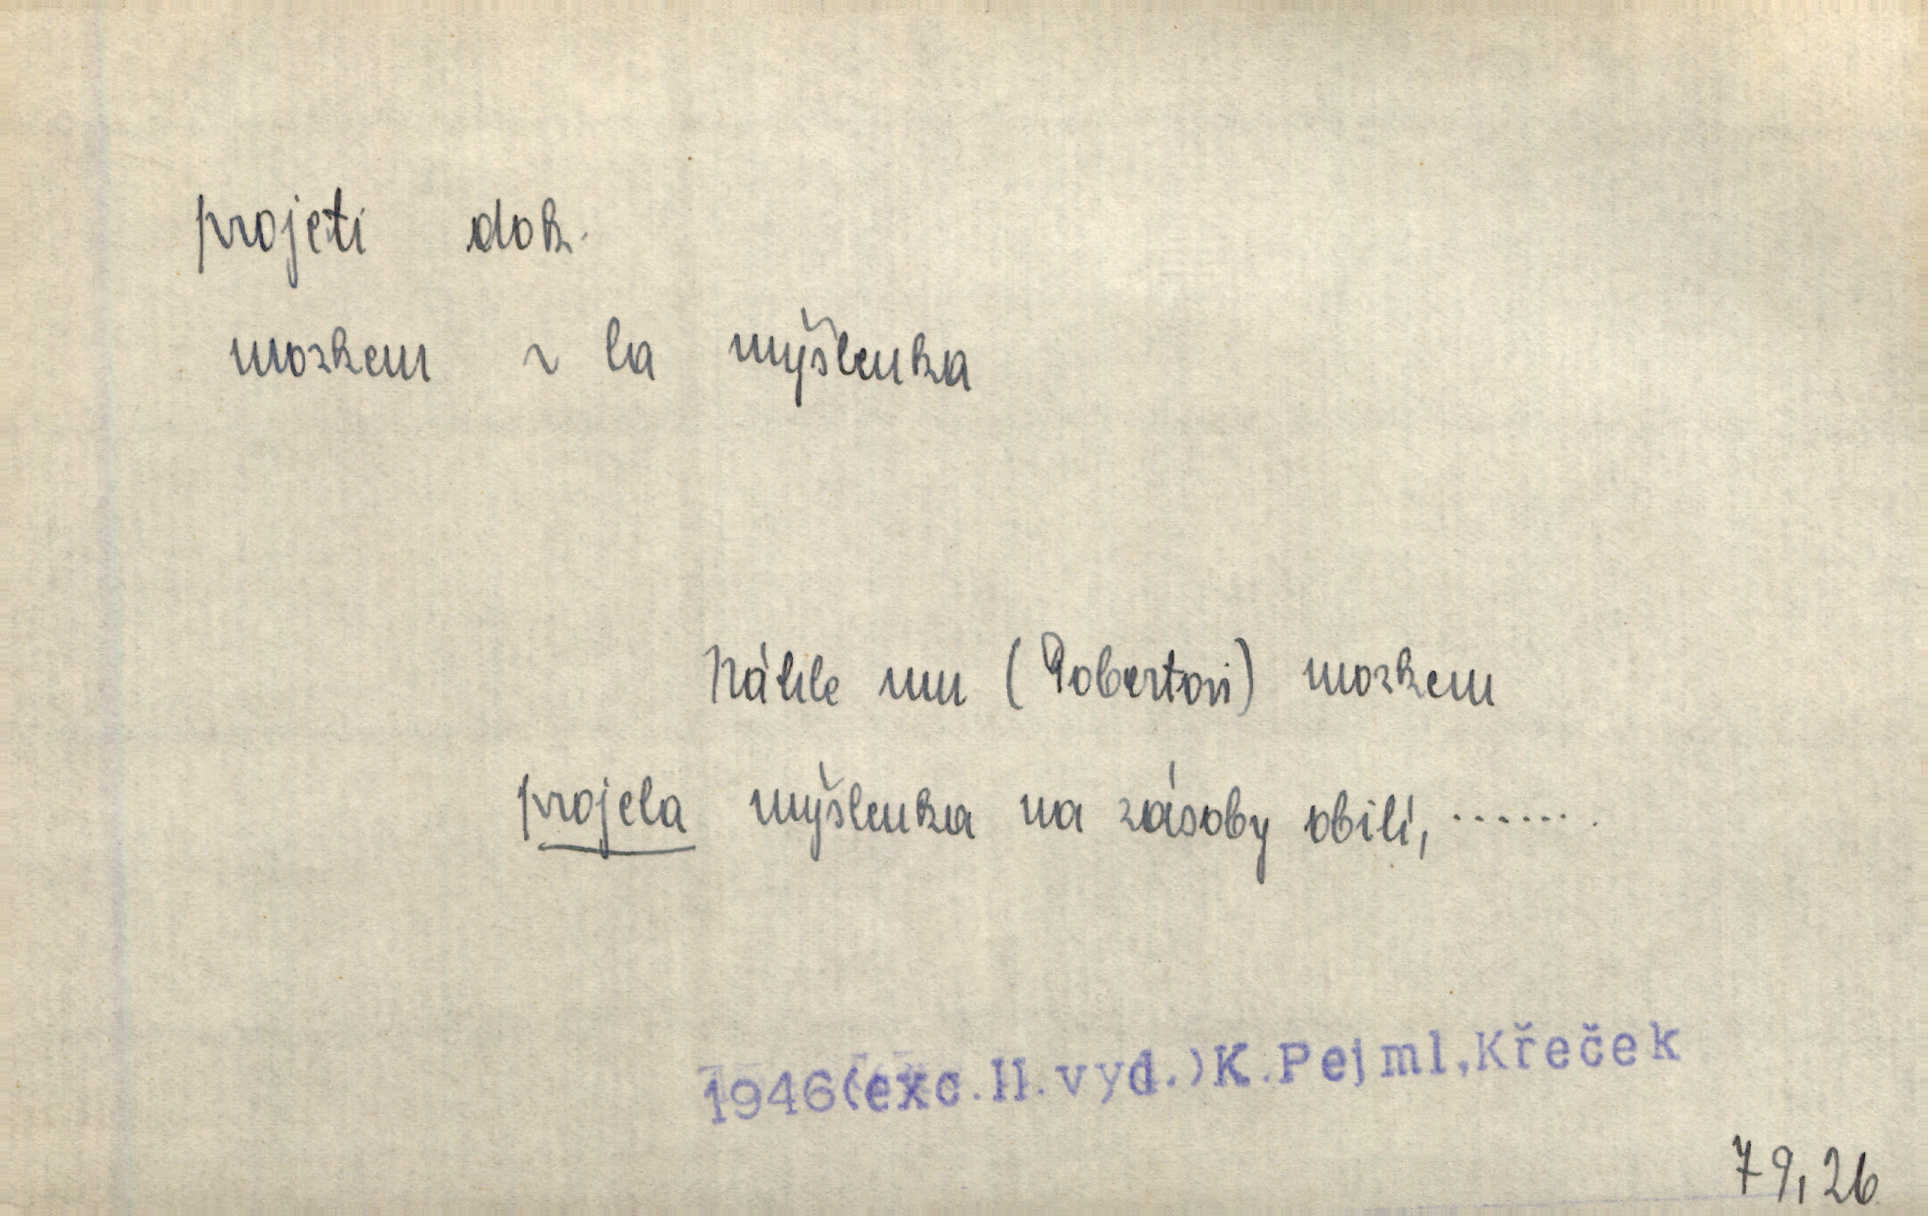 projeti dok.
mozkem ~ la myšlenka
Náhle mu (Robertovi) mozkem
projela myšlenka na zásoby obilí, .......
1946(exc.II.vyd.)K.Pejml,Křeček
79,26